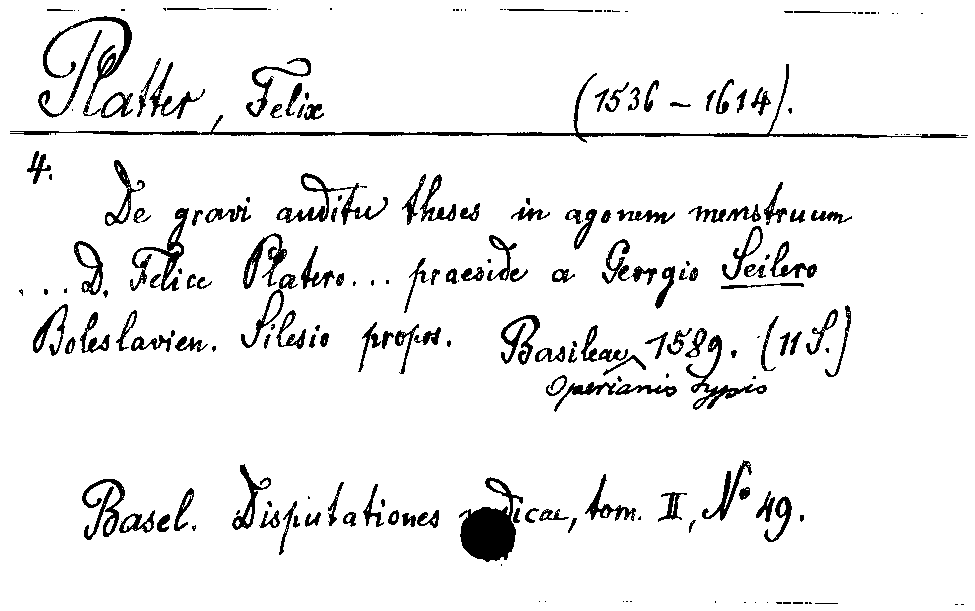 Platter, Felix (1536 - 1614).
4.
De gravi auditu theses in agonem menstruum
... D. Felice Platero... praeside a Georgio Seilero
Boleslavien. Silesio propos. Basileae, 1589. (11 S.)
Operianis typis
Basel. Disputationes medicae, tom. II, N° 49.